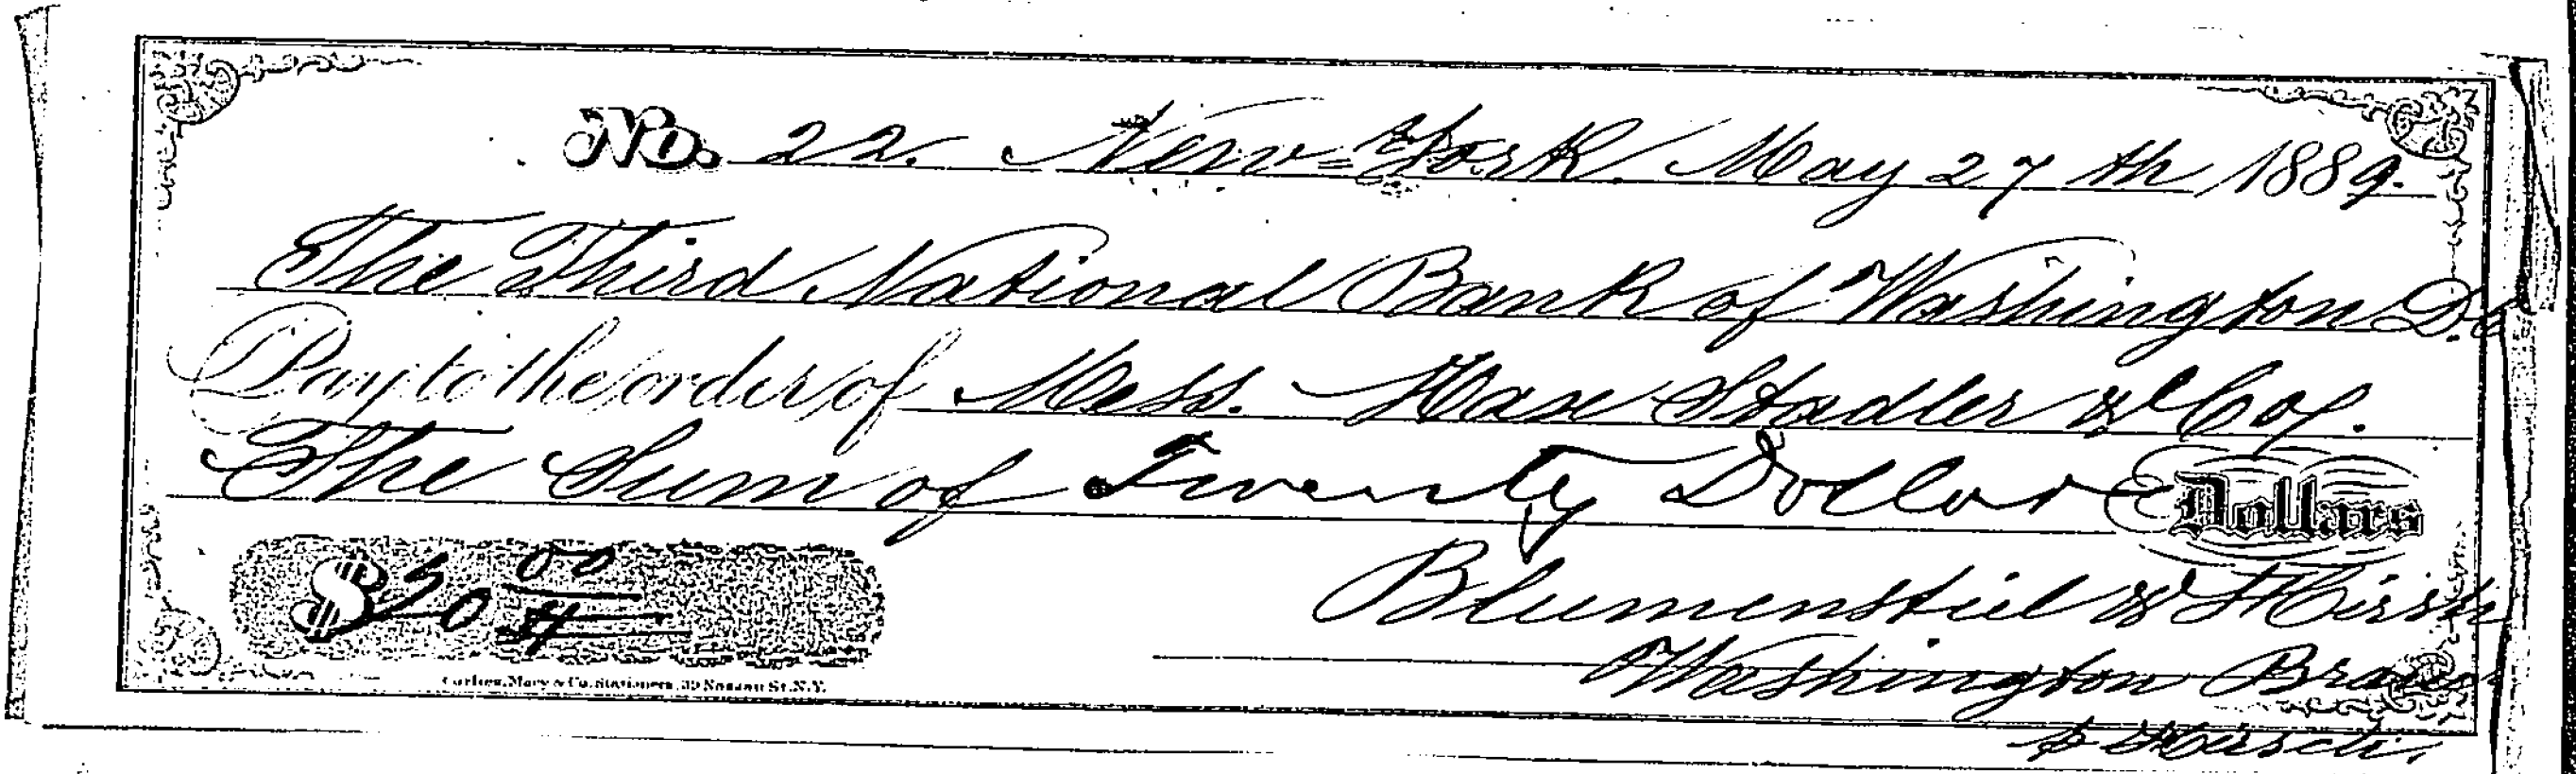 No. 22. New-York. May 27th 1889.
The Third National Bank of Washington D.C
Pay to the order of Mess. Max Stadler & Coy.
The Sum of Twenty Dollars Dollars
$ 20 00
Blumenstiel & Hirsch
Washington Branch
Hirsch.
Stationers, 39 Nassau St. N.Y.